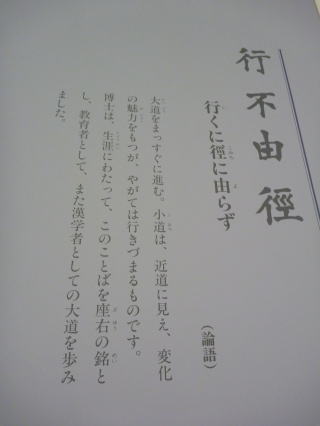 行不由徑
行くに徑に由らず
（論語）
大道をまっすぐに進む。小道は、近道に見え、変化
の魅力をもつが、やがては行きづまるものです。
博士は、生涯にわたって、このことばを座右の銘と
し、教育者として、また漢学者としての大道を歩み
ました。